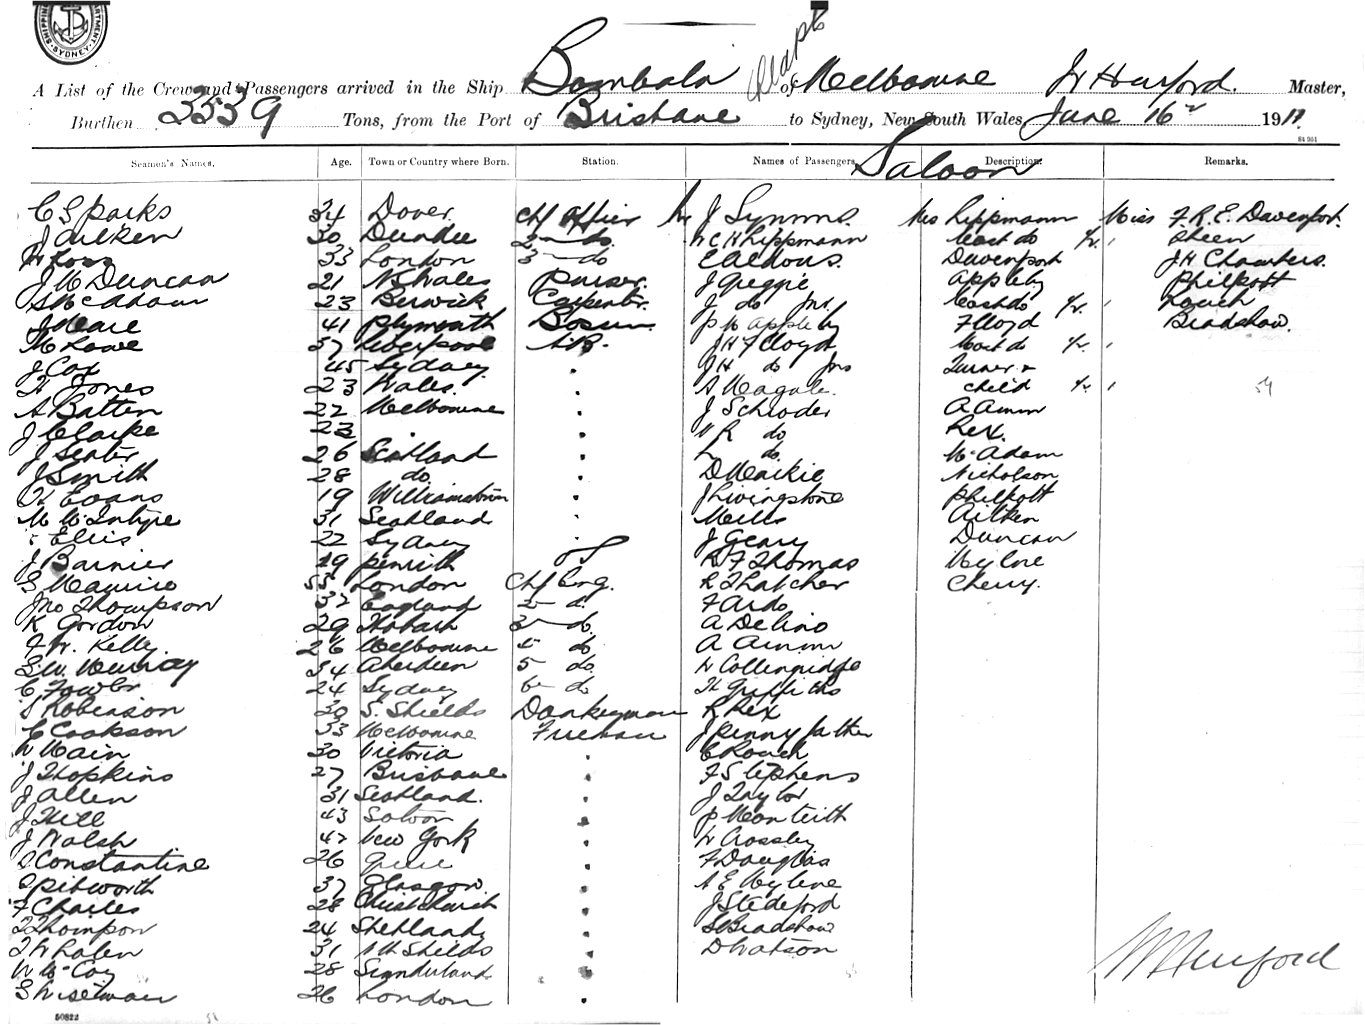 SHIPPING DEPARTMENT. SYDNEY
A List of the Crew and Passengers arrived in the Ship Bombala of Melbourne W Hurford. Master,
Burthen 3339 Tons, from the Port of Brisbane to Sydney, New South Wales, June 16 1911
84 901
Saloon
Seamen's Names. Age. Town or Country where Born. Station. Names of Passengers. Description. Remarks.
C S Parks 34 Dover. Chf Officer Mr J Symms. Mrs Lippmann Miss F. R. E. Davenport.
J Aitken 30 Dundee 2 do. W C H Lippmann Maid do Sheen
W Ross 33 London 3 do E Aldous. Davenport J H Chambers.
J M Duncan 21 N S Wales Purser. J Greggie Appleby Philpott
S McAdam 23 Berwick Carpenter. J do Jnr. Maid do Rouch
J Deare 41 Plymouth Bosun P W Appleby Floyd Bradshaw.
M Lowe 37 Liverpool A.B. J H Floyd Maid do
J Cox 45 Sydney J H do Jnr Turner &
H Jones 23 Wales. A Meagale. child
A Batten 22 Melbourne J Schroder A Amm
J Clarke 23 W R do Rex.
J Seater 26 Scotland L do. McAdam
J Smith 28 do. D Mackie Nicholson
H Evans 19 Williamstown J Livingstone Philpott
M McIntyre 31 Scotland Mills Aitken
Ellis 22 Sydney J Geary Duncan
J Barnier 19 Penrith OS R F Thomas Mylne
G Maguire 53 London Chf Eng. R Thatcher Cherry.
Jno Thompson 32 England 2 d. F Ards
K Gordon 29 Hobart 3 do. A Delino
F W. Kelly 26 Melbourne 4 do A Amm
G W. Murray 34 Aberdeen 5 do. W Collingridge
C Fowler 24 Sydney 6 do H Griffiths
S Robinson 30 S. Shields Donkeyman R Rex
C Cookson 33 Melbourne Fireman J Pennyfather
W Main 30 Victoria C Rouch
J Hopkins 27 Brisbane F Stephens
J Allen 31 Scotland. J Taylor
J Hill 43 P Monteith
J Walsh 42 New York W Crossley
Constantine 26 Greece F Douglas
Pitworth 37 Glasgow. A E Mylene
F Charles 28 Christchurch J Stedeford
T Thompson 24 Shetland S Bradshaw
T Whalen 31 Nth Shields D Watson
W McCoy 28 Sunderland
S Wiseman 26 London
W Hurford
50822